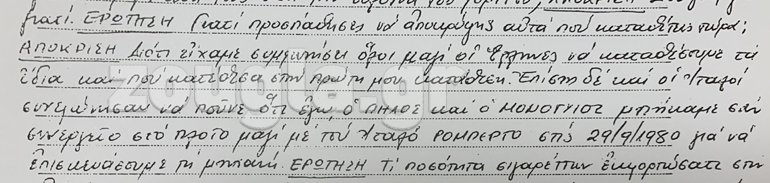 γιατί. ΕΡΩΤΗΣΗ Γιατί προσπάθησες να αποκρύψης αυτά που καταθέτεις τώρα;
ΑΠΟΚΡΙΣΗ Διότι είχαμε συμφωνήσει όλοι μαζί οι Έλληνες να καταθέσουμε τα
ίδια και που κατέθεσα στην πρώτη μου κατάθεση. Επίση δε και οι Ιταλοί
συνεφώνησαν να πούνε ότι εγώ, ο ΔΗΛΟΣ και ο ΜΟΝΟΓΥΙΟΣ μπήκαμε στο
συνεργείο στο πλοίο μαζί με τον Ιταλό ΡΟΜΠΕΡΤΟ στις 29/9/1980 για να
επισκευάσουμε τη μηχανή. ΕΡΩΤΗΣΗ Τι ποσότητα σιγαρέττων εκφορτώσατε στη
zougla.gr